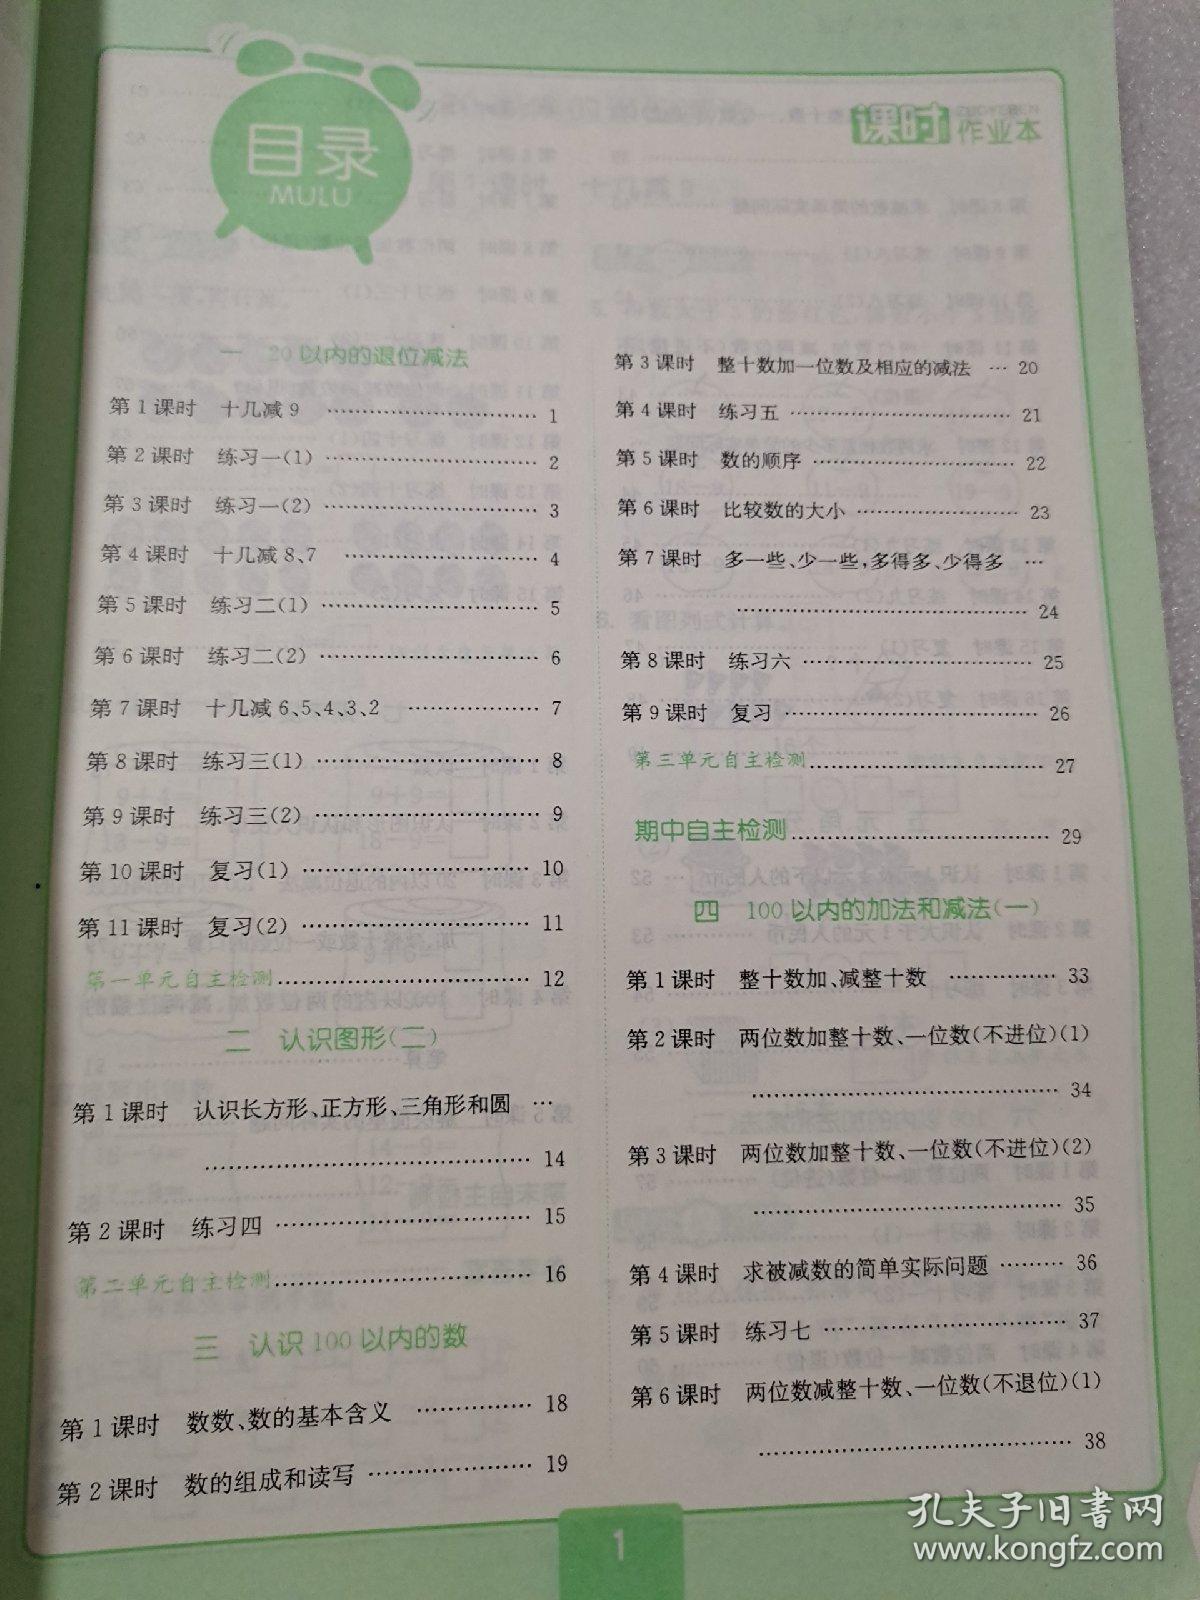 目录
MULU
课时作业本
一 20以内的退位减法
第1课时 十几减9 …………………… 1
第2课时 练习一(1) …………………… 2
第3课时 练习一(2) …………………… 3
第4课时 十几减8、7 …………………… 4
第5课时 练习二(1) …………………… 5
第6课时 练习二(2) …………………… 6
第7课时 十几减6、5、4、3、2 ……………… 7
第8课时 练习三(1) …………………… 8
第9课时 练习三(2) …………………… 9
第10课时 复习(1) …………………… 10
第11课时 复习(2) …………………… 11
第一单元自主检测 …………………… 12
二 认识图形(二)
第1课时 认识长方形、正方形、三角形和圆 …
…………………………… 14
第2课时 练习四 …………………… 15
第二单元自主检测 …………………… 16
三 认识100以内的数
第1课时 数数、数的基本含义 …………… 18
第2课时 数的组成和读写 ……………… 19
第3课时 整十数加一位数及相应的减法 … 20
第4课时 练习五 …………………… 21
第5课时 数的顺序 …………………… 22
第6课时 比较数的大小 ……………… 23
第7课时 多一些、少一些,多得多、少得多 …
…………………………… 24
第8课时 练习六 …………………… 25
第9课时 复习 …………………… 26
第三单元自主检测 …………………… 27
期中自主检测 …………………… 29
四 100以内的加法和减法(一)
第1课时 整十数加、减整十数 …………… 33
第2课时 两位数加整十数、一位数(不进位)(1)
…………………………… 34
第3课时 两位数加整十数、一位数(不进位)(2)
…………………………… 35
第4课时 求被减数的简单实际问题 ……… 36
第5课时 练习七 …………………… 37
第6课时 两位数减整十数、一位数(不退位)(1)
…………………………… 38
1
孔夫子旧书网
www.kongfz.com